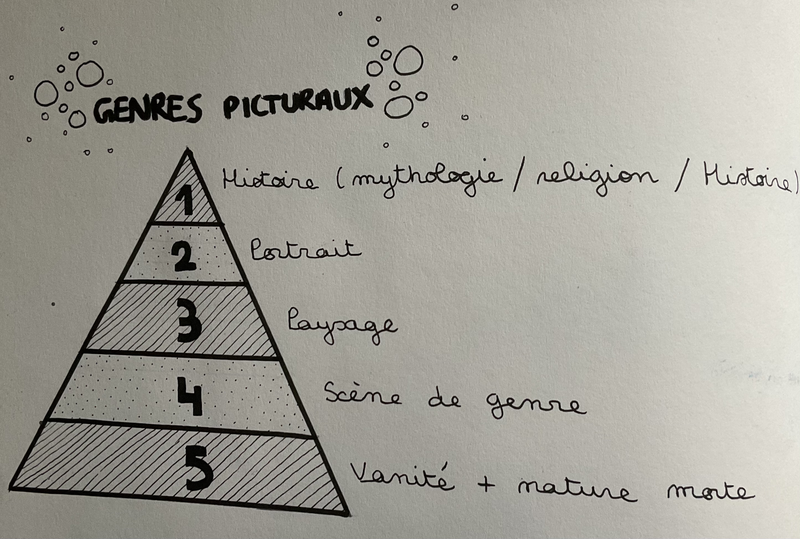 GENRES PICTURAUX
1 Histoire (mythologie / religion / Histoire)
2 Portrait
3 Paysage
4 Scène de genre
5 Vanité + nature morte